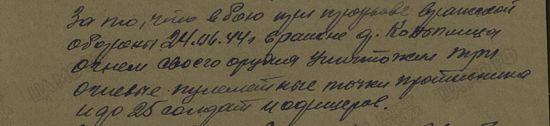 За то, что в бою при прорыве вражеской
обороны 24.06.44г в районе д. Копытница
огнем своего орудия уничтожил три
огневые пулеметные точки противника
и до 25 солдат и офицеров.